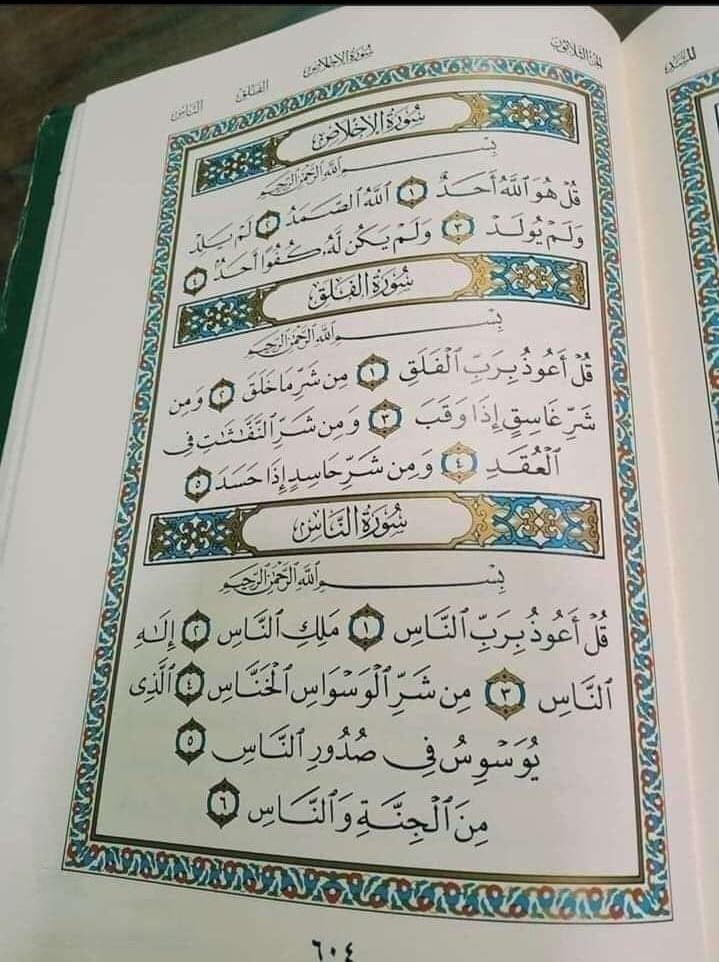 الجزء الثلاثون
سورة الإخلاص
الفلق
الناس
سُورَةُ الإِخْلَاصِ
بِسْمِ ٱللَّهِ ٱلرَّحْمَٰنِ ٱلرَّحِيمِ
قُلْ هُوَ ٱللَّهُ أَحَدٌ ١ ٱللَّهُ ٱلصَّمَدُ ٢ لَمْ يَلِدْ
وَلَمْ يُولَدْ ٣ وَلَمْ يَكُن لَّهُۥ كُفُوًا أَحَدٌۢ ٤
سُورَةُ الفَلَقِ
بِسْمِ ٱللَّهِ ٱلرَّحْمَٰنِ ٱلرَّحِيمِ
قُلْ أَعُوذُ بِرَبِّ ٱلْفَلَقِ ١ مِن شَرِّ مَا خَلَقَ ٢ وَمِن
شَرِّ غَاسِقٍ إِذَا وَقَبَ ٣ وَمِن شَرِّ ٱلنَّفَّٰثَٰتِ فِى
ٱلْعُقَدِ ٤ وَمِن شَرِّ حَاسِدٍ إِذَا حَسَدَ ٥
سُورَةُ النَّاسِ
بِسْمِ ٱللَّهِ ٱلرَّحْمَٰنِ ٱلرَّحِيمِ
قُلْ أَعُوذُ بِرَبِّ ٱلنَّاسِ ١ مَلِكِ ٱلنَّاسِ ٢ إِلَٰهِ
ٱلنَّاسِ ٣ مِن شَرِّ ٱلْوَسْوَاسِ ٱلْخَنَّاسِ ٤ ٱلَّذِى
يُوَسْوِسُ فِى صُدُورِ ٱلنَّاسِ ٥
مِنَ ٱلْجِنَّةِ وَٱلنَّاسِ ٦
٦٠٤